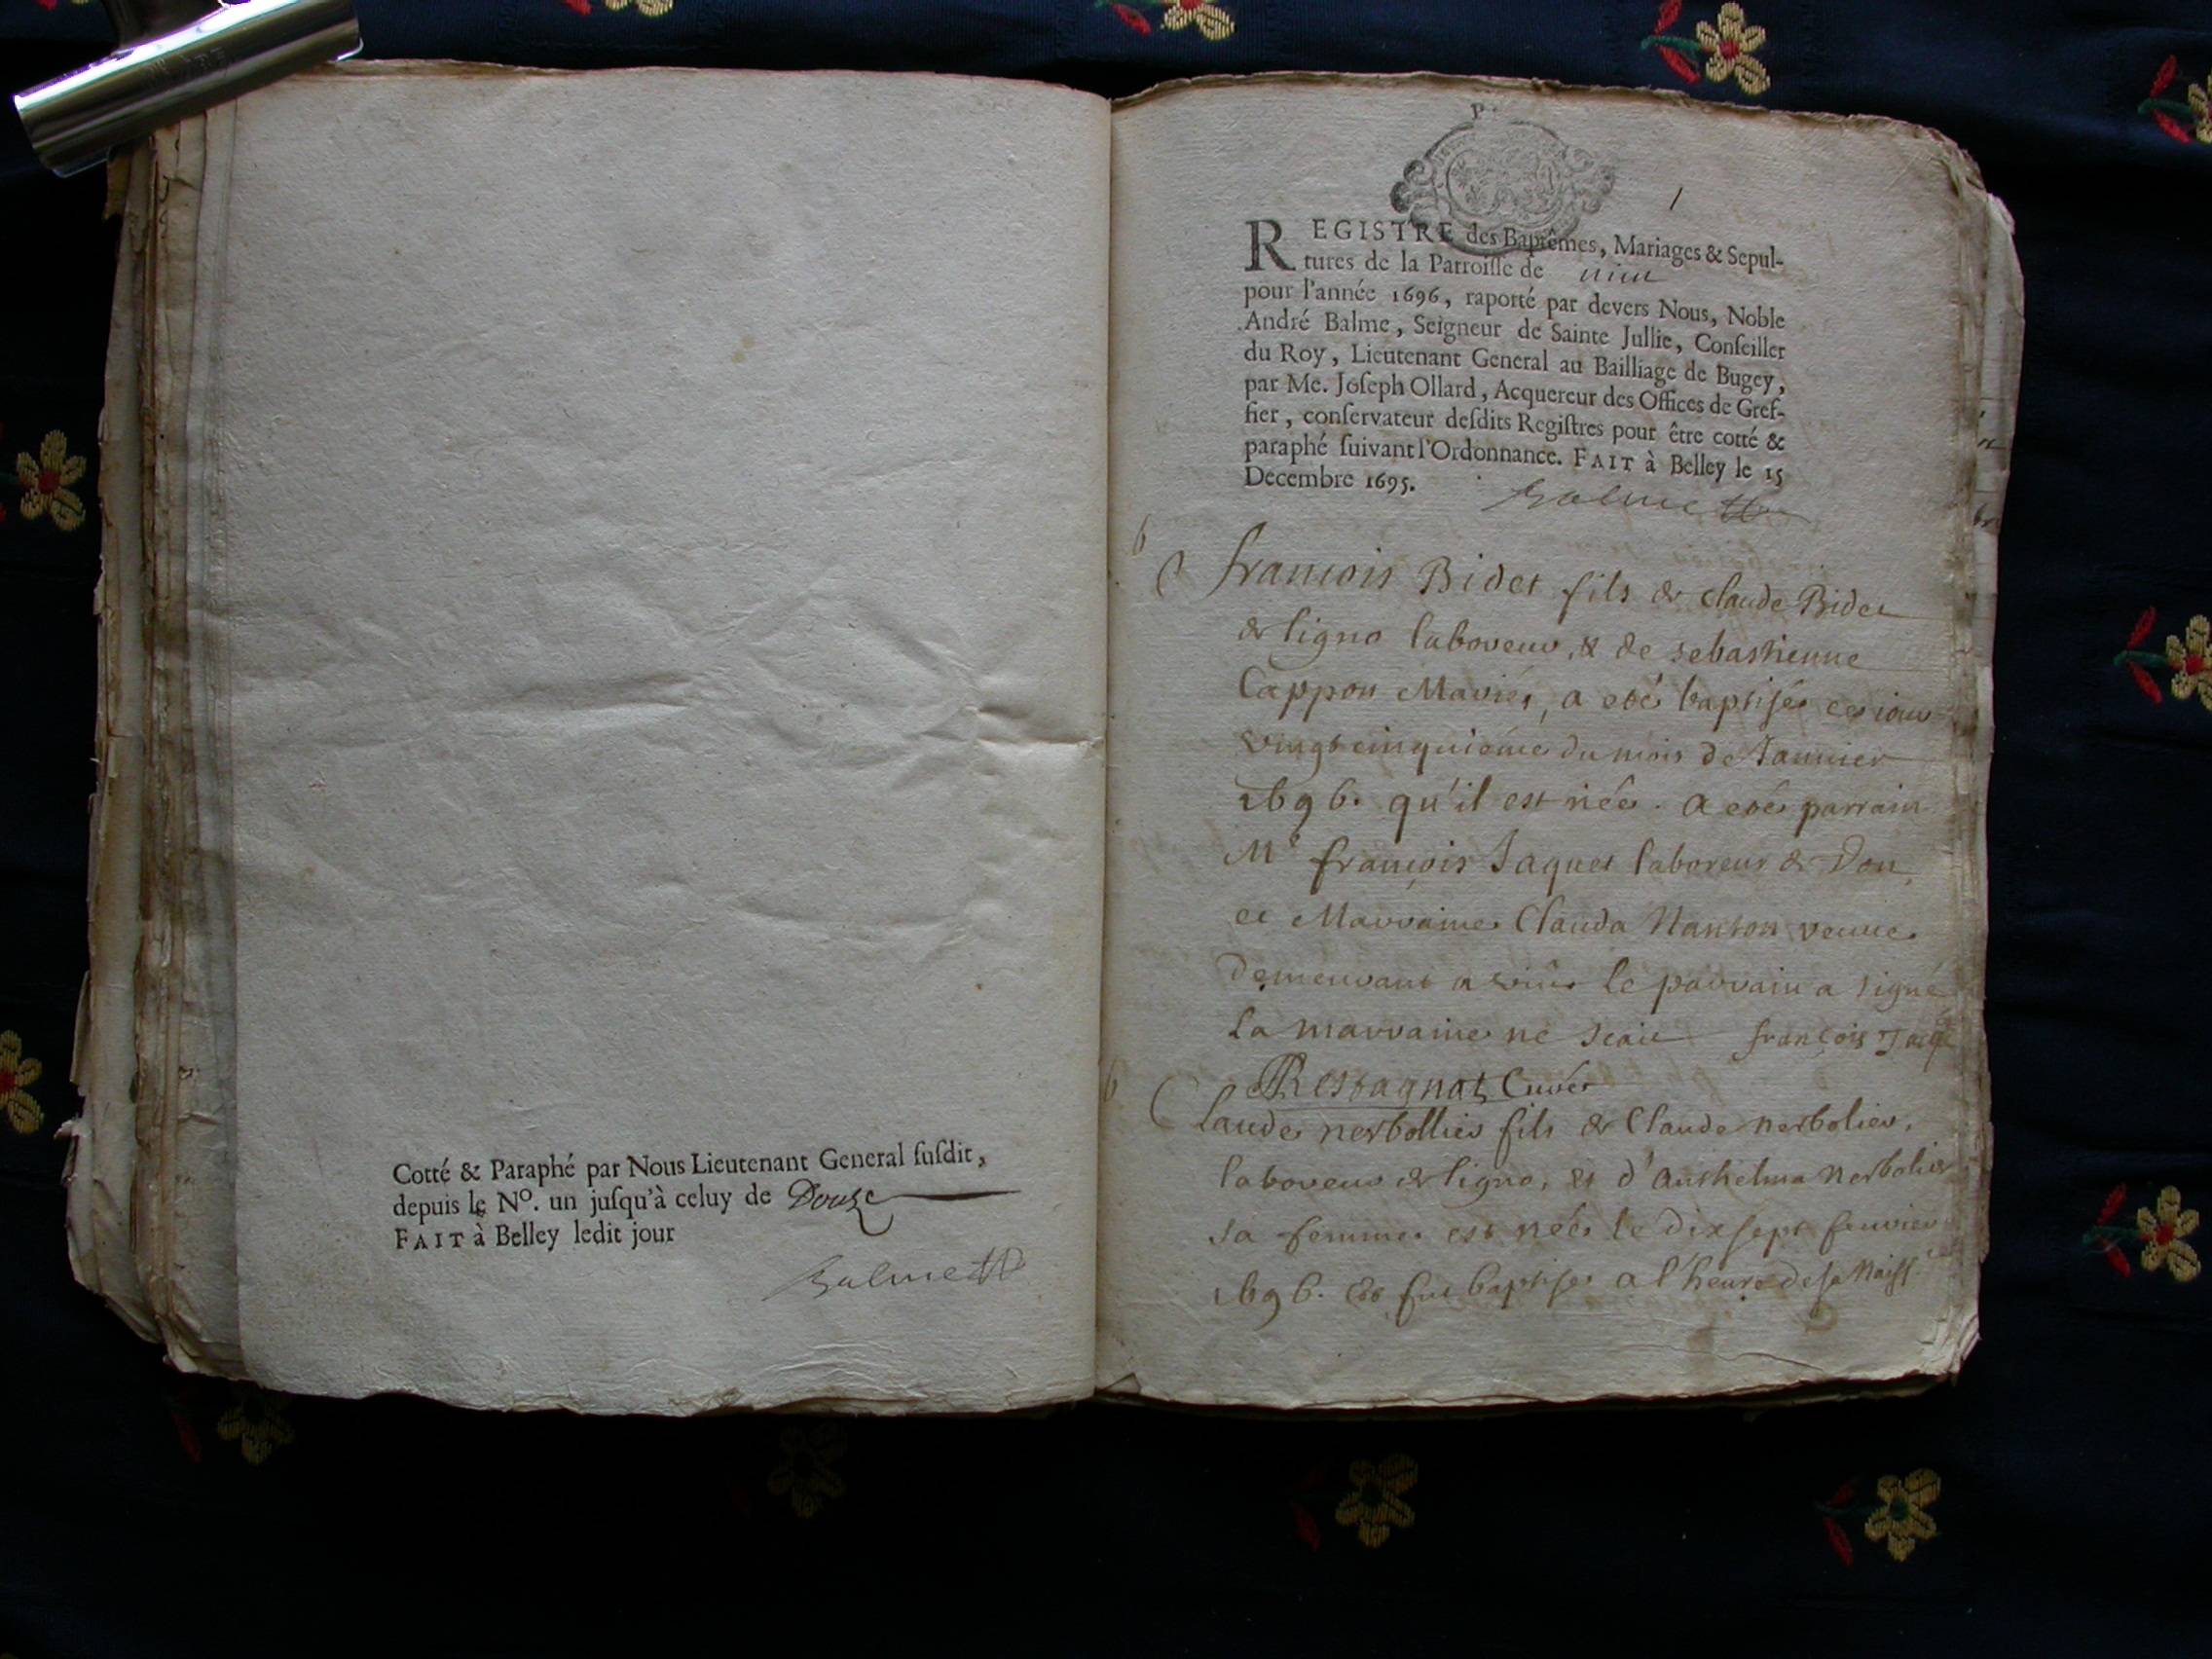 Cotté & Paraphé par Nous Lieutenant General ſuſdit,
depuis le No. un juſqu'à celuy de Douze
FAIT à Belley ledit jour
Balme
1
REGISTRE des Baptêmes, Mariages & Sepul-
tures de la Parroiſſe de
pour l'année 1696, raporté par devers Nous, Noble
André Balme, Seigneur de Sainte Jullie, Conſeiller
du Roy, Lieutenant General au Bailliage de Bugey,
par Me. Joſeph Ollard, Acquereur des Offices de Gref-
fier, conſervateur deſdits Regiſtres pour être cotté &
paraphé ſuivant l'Ordonnance. FAIT à Belley le 15
Decembre 1695.
Balme
b
francois Bidet fils de Claude Bidet
de ligno laboreur, & de sebastienne
Cappon Mariés, a eté baptisé ce jour
vingt cinquiéme du mois de Januier
1696. qu'il est née. a eté parrain
Me françois Jaquet laboreur de Don,
et Marraine Clauda Nanton veuue
demeurant a le parrain a signé
La marraine ne scait françois Jaq
Restagnat, Curé
b
Claude nerbollier fils de Claude nerbolier,
laboreur de ligno, et d'Anthelma nerbolier
sa femme est née le dix sept feuvrier
1696. et fut baptisé a l'heure de sa Naiss.